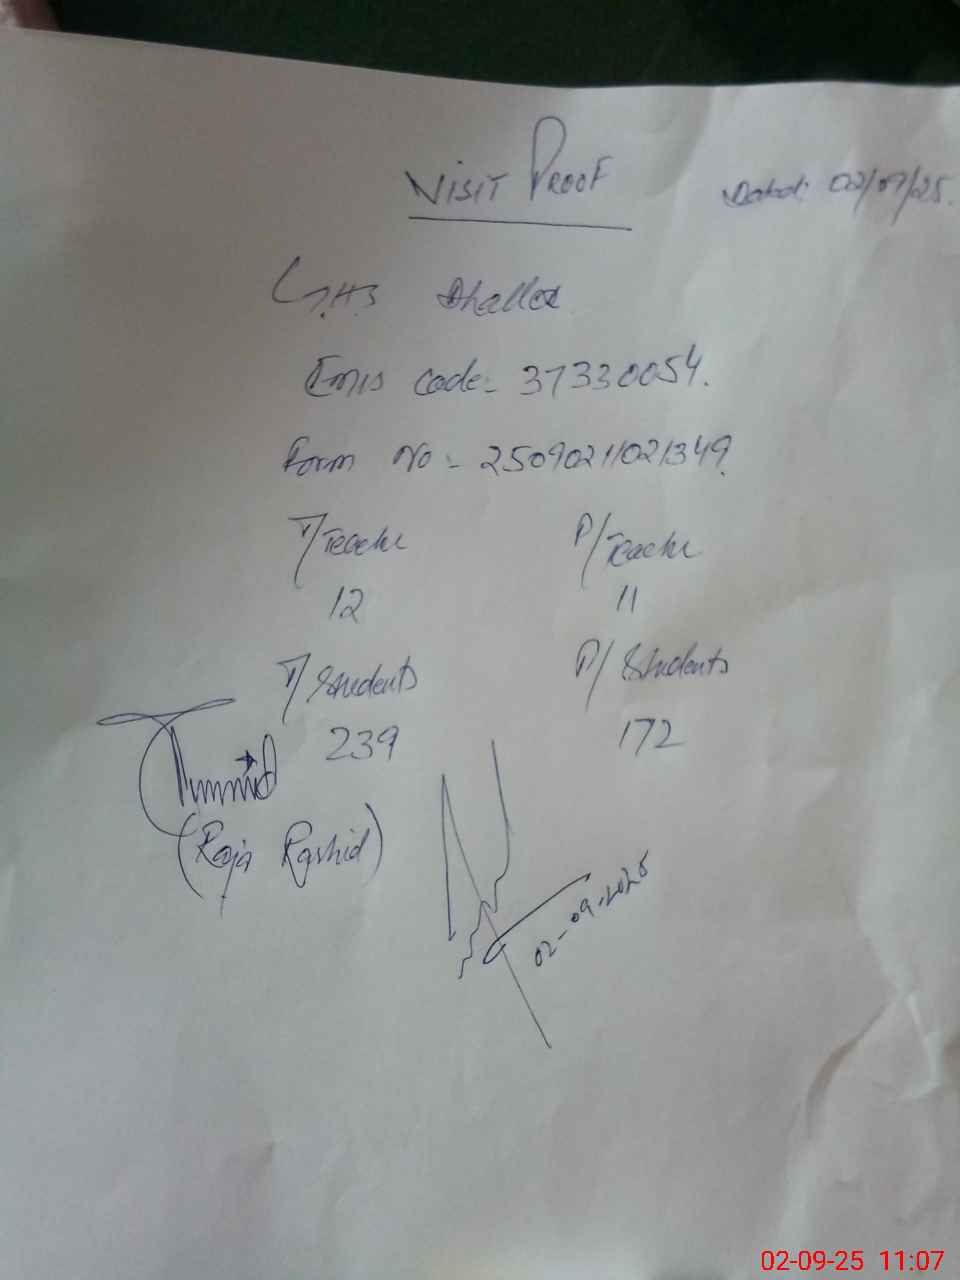 VISIT PROOF Dated: 02/09/25.
G.H.S Dhalla
Emis code:- 37330054.
Form No:- 2509021021349.
T/Teache P/Teache
12 11
T/Students P/Students
239 172
(Raja Rashid)
02-09-2025
02-09-25 11:07